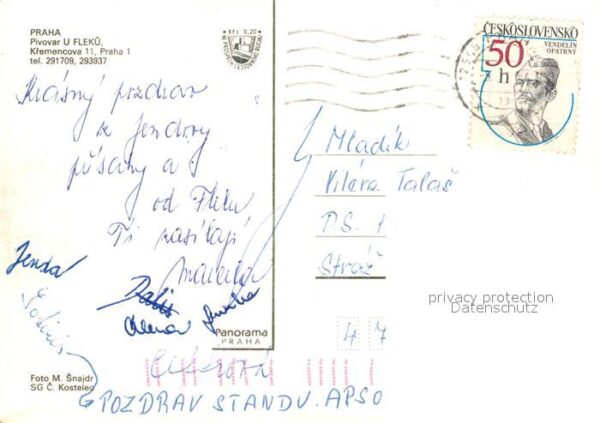 PRAHA
Pivovar U FLEKŮ,
Křemencova 11, Praha 1
tel. 291709, 293937
Kčs 0,20
ČESKOSLOVENSKO
50
h
VENDELÍN
OPATRNÝ
Krásný pozdrav
z Jendovy
písány a
od Fleků
Ti zasílají
Jenda
Mladík
Viléza Talaš
P.S. 1
Stráž
privacy protection
Datenschutz
4 7
Panorama
PRAHA
Foto M. Šnajdr
SG Č. Kostelec
POZDRAV STANDU. APSO